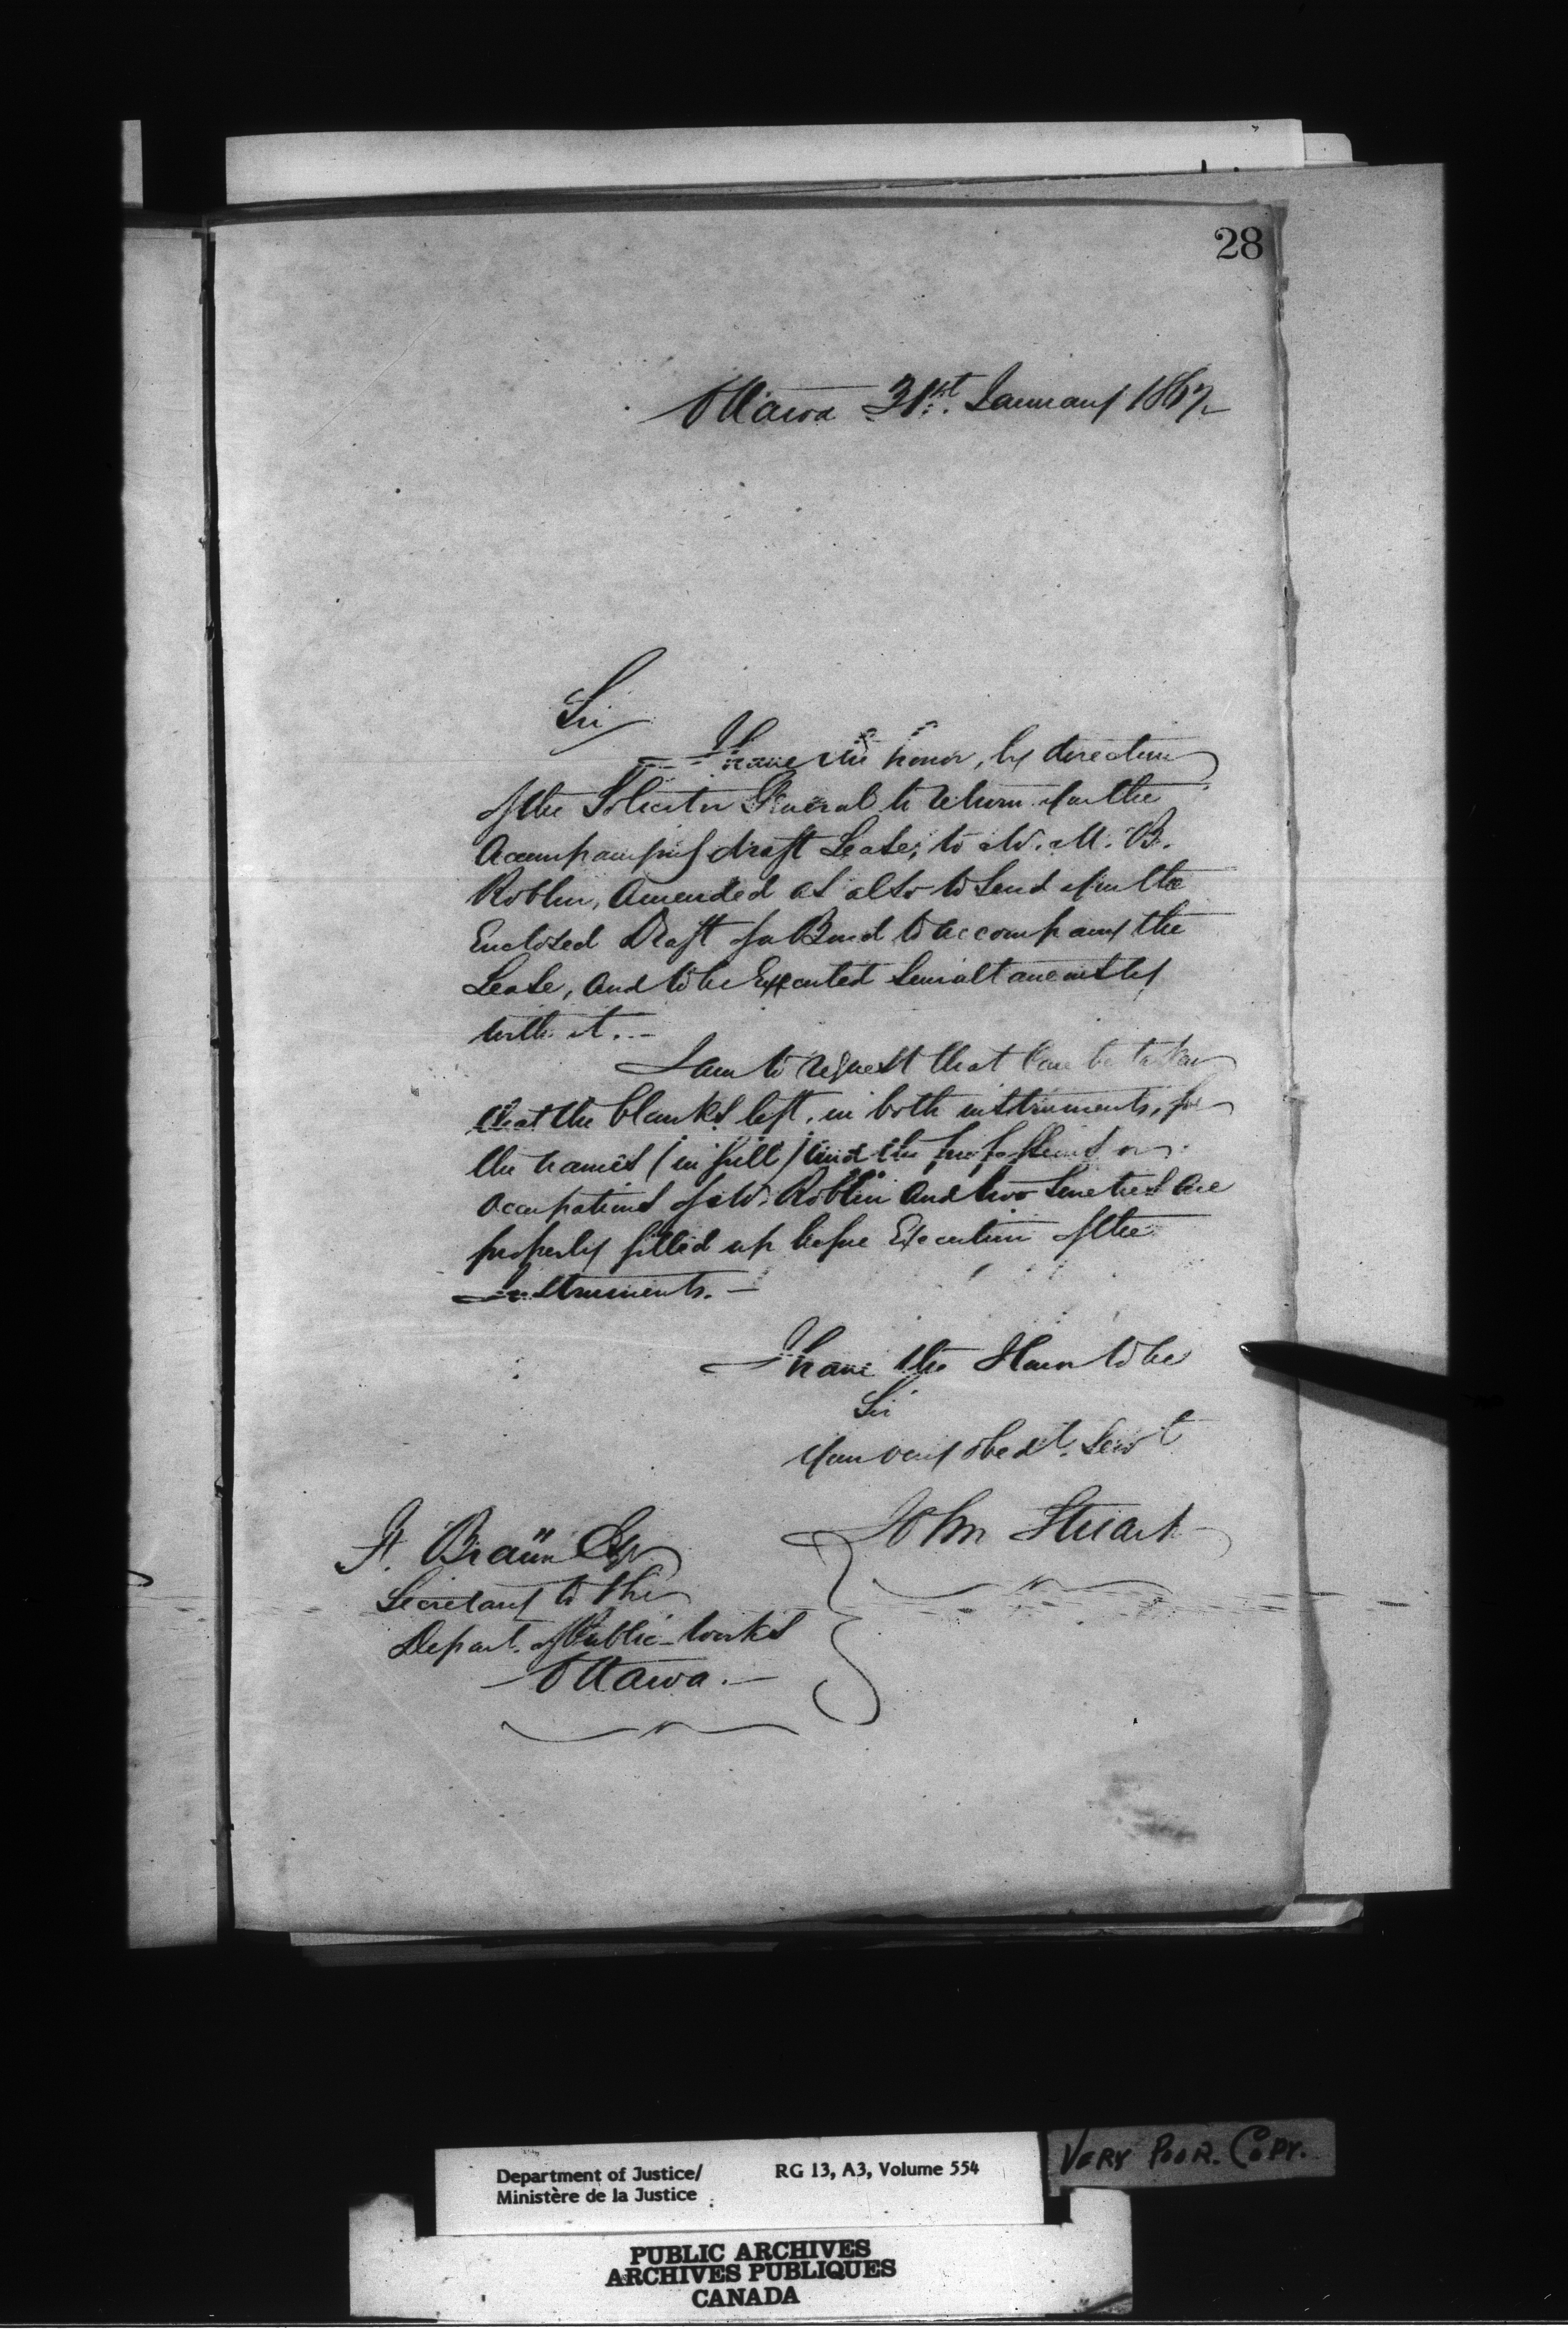 28
Ottawa 31st. January 1867
Sir
I have the honor, by direction
of the Solicitor General to return you the
Accompanying draft Lease, to Mr. M. B.
Roblin, Amended as also to send you the
Enclosed Draft of a Bond to accompany the
Lease, and to be Executed Simultaneously
with it.. —
I am to request that Care be taken
that the blanks left, in both instruments, for
the names (in full) and the professions or
occupations of Mr. Roblin and two Sureties are
properly filled up before Execution of the
Instruments. —
I have the Honor to be
Sir
Your very obedt. Servt
John Stuart
F. Braün Esqr
Secretary to the
Depart. of Public Works
Ottawa. —
Department of Justice/
Ministère de la Justice
RG 13, A3, Volume 554
VERY POOR. COPY.
PUBLIC ARCHIVES
ARCHIVES PUBLIQUES
CANADA